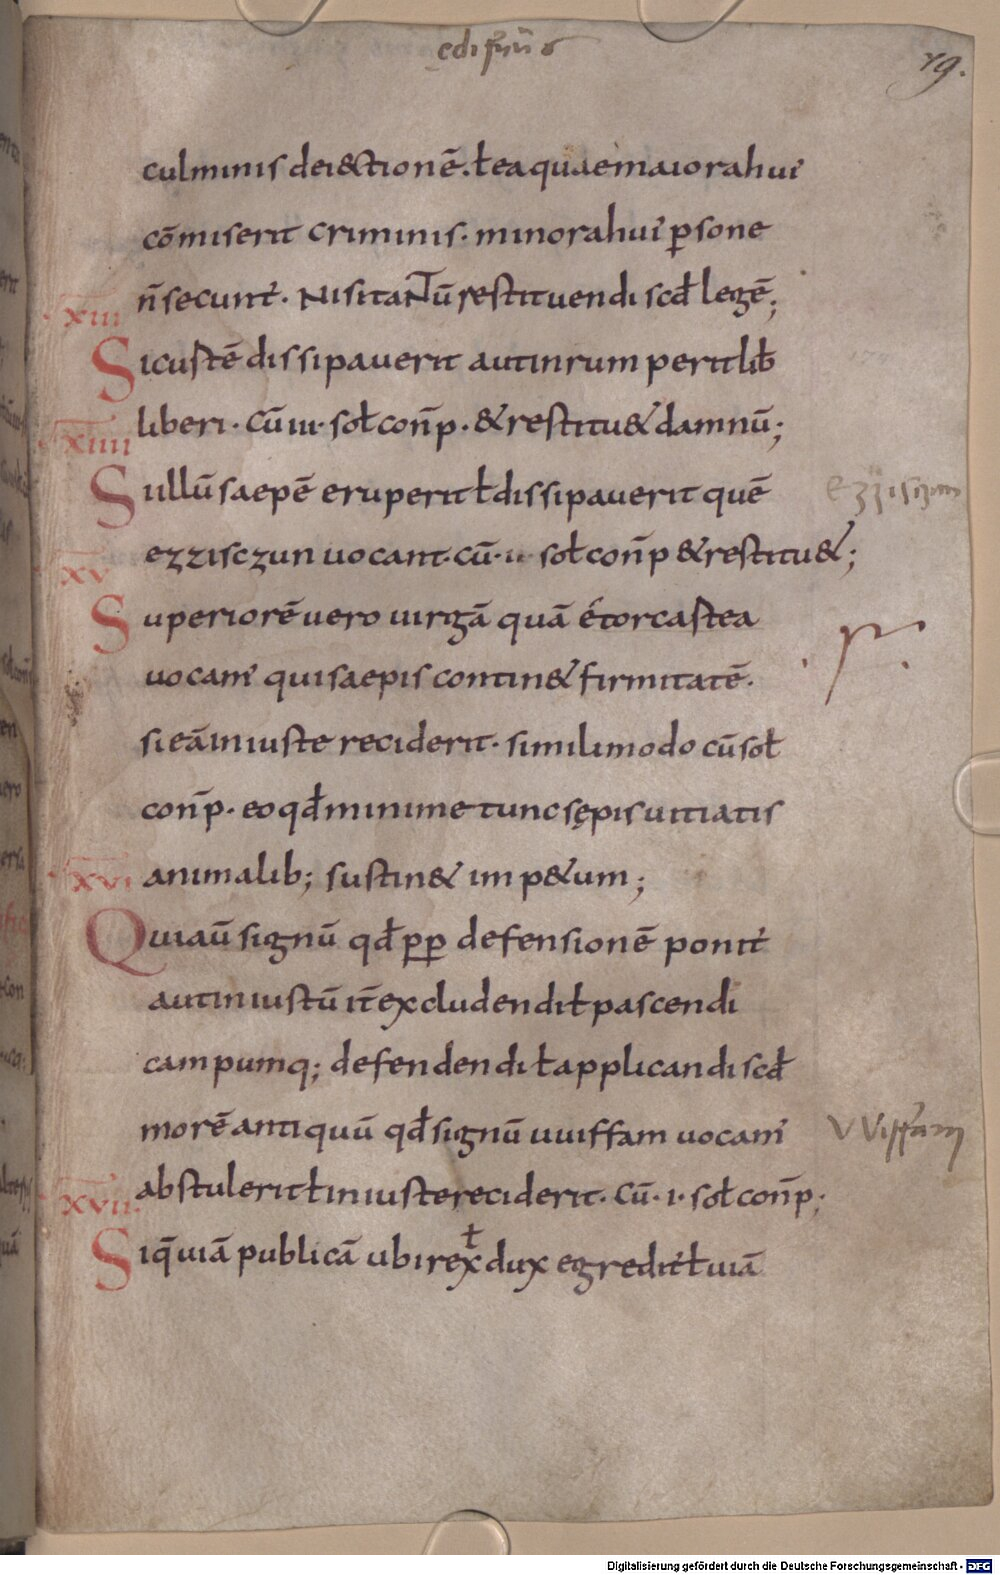 79.
culminis dei&ctionē. ƚ ea quae maiora hui᾽
cōmiserit criminis. minora hui᾽ p̲sone
n̄ secunt᾽. Nisi taNTū restituendi scđ legē;
XIII
Si custē dissipaverit aut inrumperit lib̄
liberi. Cū III. soƚ con̄p. & restitu& damnū;
XIIII
Si illū saepē eruperit ƚ dissipaverit quē
ezziszun
ezzisczun uocant. cū. II. soƚ con̄p & restitu&;
XV
Superiorē vero uirgā quā &orcastea
uocam᾽ qui saepis contin& firmitatē.
si eā iniuste reciderit. simili modo cū soƚ
con̄p. eo qđ minime tunc sępis uitiatis
animalib; sustin& imp&um;
XVI
Qui aū signū qđ pp defensionē ponit᾽
aut iniustū it̄ excludendi ƚ pascendi
campumq; defendendi ƚ applicandi scđ
morē antiquū qđ signū uuiffam uocam᾽
VViffam
abstulerit ƚ iniuste reciderit. Cū. I. soƚ con̄p;
XVII.
Si q̄ uiā publicā ubi rex ƚ dux egredit᾽ ƚ uiā
Digitalisierung gefördert durch die Deutsche Forschungsgemeinschaft - DFG